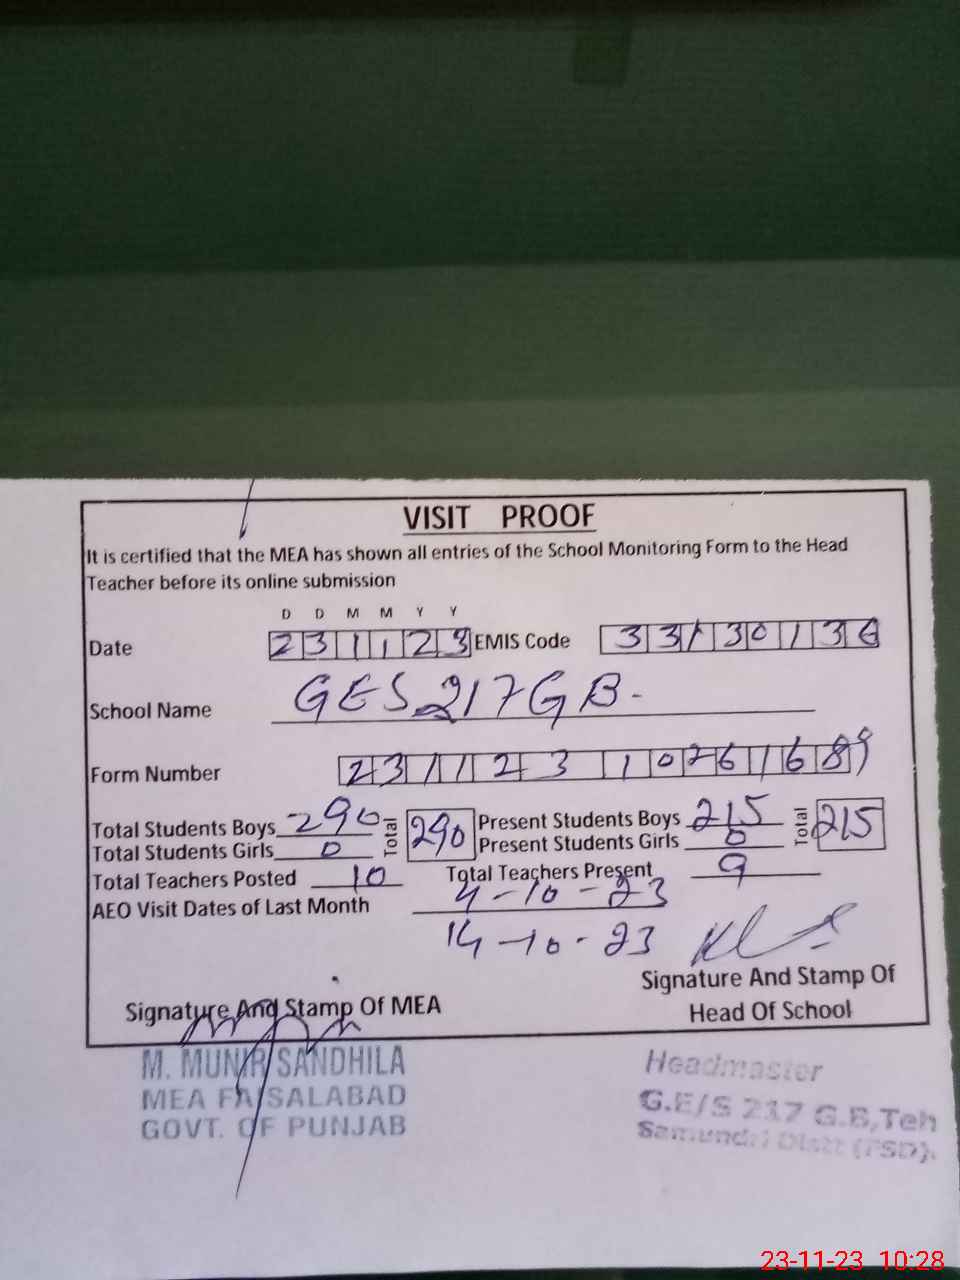 VISIT PROOF
It is certified that the MEA has shown all entries of the School Monitoring Form to the Head
Teacher before its online submission
D D M M Y Y
Date 231123 EMIS Code 33130136
School Name GES 217 GB.
Form Number 231123
Total Students Boys 290 Total 290 Present Students Boys 215 Total 215
Total Students Girls 0 Present Students Girls 0
Total Teachers Posted 10 Total Teachers Present 9
AEO Visit Dates of Last Month 4-10-23
14-10-23
Signature And Stamp Of MEA
Signature And Stamp Of
Head Of School
M. MUNIR SANDHILA
MEA FAISALABAD
GOVT. OF PUNJAB
Headmaster
G.E/S 217 G.B,Teh
Samundri Distt (FSD).
23-11-23 10:28